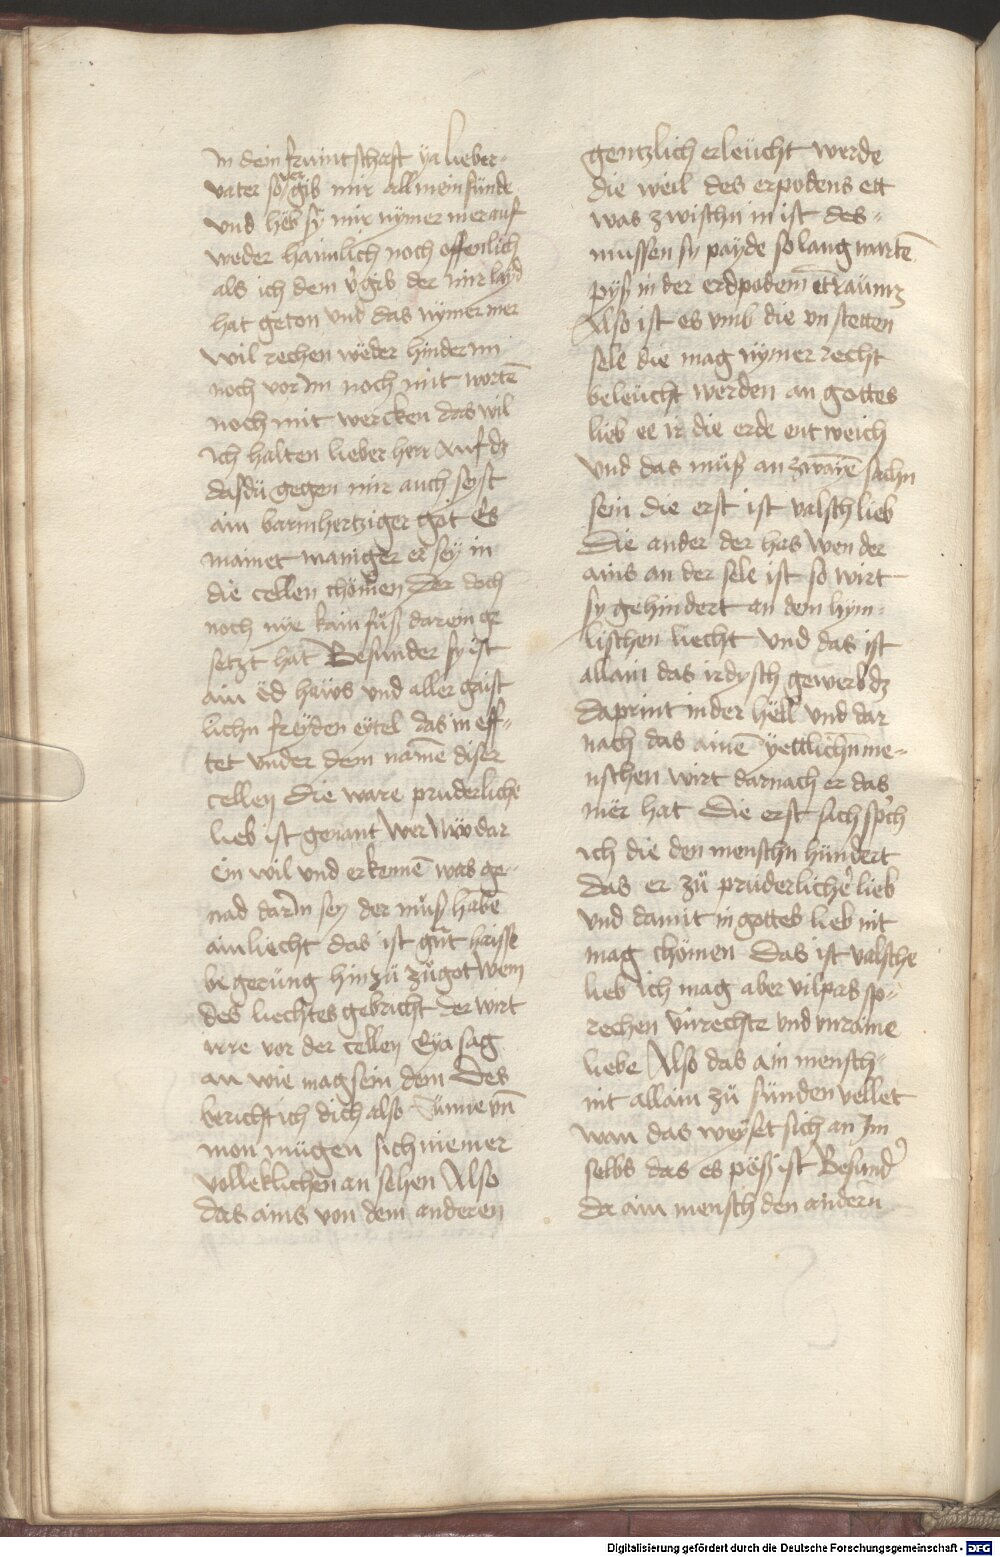 In dein fruintschaft ya lieber-
vater so vergib mir all mein sünde
und heb sy mir nÿmer mer auf
weder haimlich noch offenlich
als ich dem v'gib der mir layd
hat geton und das nymer mer
wil rechen weder hinder im
noch vor im noch mit wortē
noch mit wercken das wil
ich halten lieber herr Auf dz
das dü gegen mir auch seyst
ain barmhertziger got Es
mainet maniger er seÿ in
die cellen chömen Der doch
noch nÿe kain füß darein ge
setzt hat Besunder sy ist
ain öd haws und aller gaist
lichn freÿden eÿtel das in eff-
tet under dem namē diser
cellen Die ware pruderliche
lieb ist genant Wer Nw dar
ein wil und erkennē was ge-
nad darin sey der müß habē
ain liecht das ist gūt haisse
begerüng hinzü zü got Wem
des liechtes gebricht der wirt
irre vor der cellen Eÿa sag
an wie mag sein dem Des
bericht ich dich also Sünne vn̄
mon mügen sich niemer
volleklichen an sehen Also
das ains von dem anderen
gentzlich erleücht werde
die weil des erpodens ett
was zwischn in ist des-
mussen sy payde so lang wartē
pÿß in der erdpodem ētraümz
Also ist es vmb die vn stetten
sele die mag nÿmer recht
beleücht werden an gottes
lieb ee ir die erde entweich
Und das müß an zwayē sachn
sein die erst ist valsch lieb
Die ander der has Wen der
ains an der sele ist so wirt
sy gehindert an dem hÿm-
lischen liecht Und das ist
allain das irdysch gewerb dz
daprint in der hëll und dar
nach das ainē ÿettlichn me-
nschen wirt darnach er das
mër hat Die erst sach sprich
ich die den menschn hündert
das er zü prüderlicher lieb
und damit in gottes lieb nit
mag chömen Das ist valsche
lieb Ich mag aber vil pas sp-
rechen vnrechte und vnraine
liebe Also das ain mensch
nit allain zü sünden vellet
wan das weÿset sich an Im
selbs das es pöß ist Besund'
da ain mensch den andern
Digitalisierung gefördert durch die Deutsche Forschungsgemeinschaft - DFG